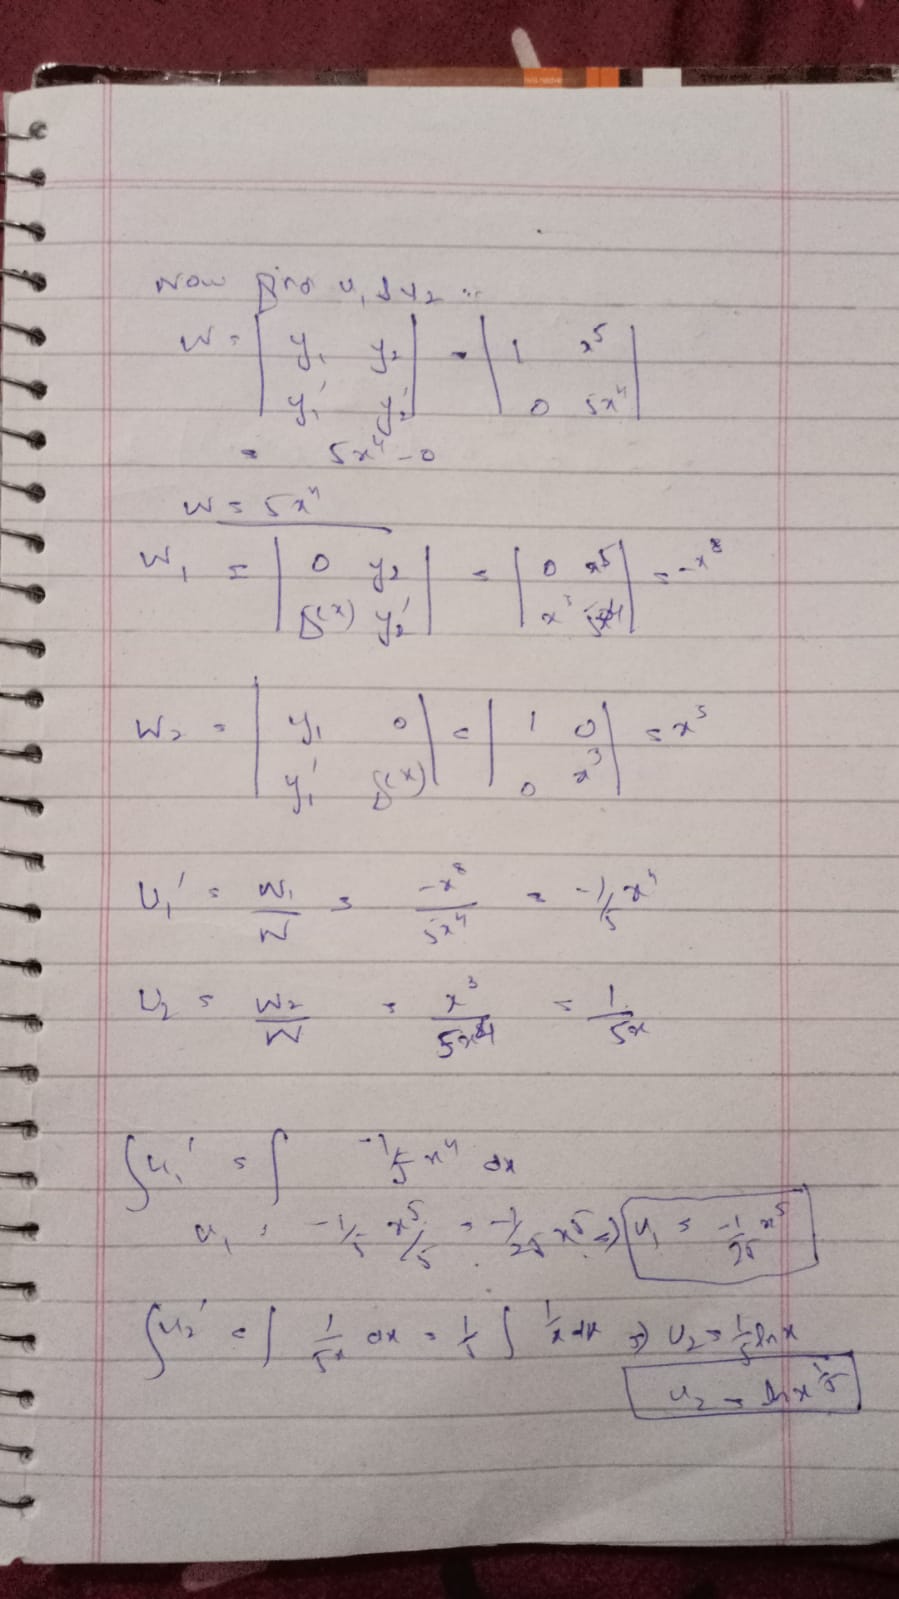 Now find u₁ & y₂ :-
W = | y₁ y₂ | = | 1 x⁵ |
| y₁' y₂' | | 0 5x⁴ |
= 5x⁴ - 0
W = 5x⁴
W₁ = | 0 y₂ | = | 0 x⁵ | = -x⁸
| f(x) y₂' | | x³ 5x⁴ |
W₂ = | y₁ 0 | = | 1 0 | = x³
| y₁' f(x) | | 0 x³ |
U₁' = W₁/W = -x⁸/5x⁴ = -1/5 x⁴
U₂ = W₂/W = x³/5x⁴ = 1/5x
∫u₁' = ∫ -1/5 x⁴ dx
u₁ = -1/5 x⁵/5 = -1/25 x⁵ ⇒ u₁ = -1/25 x⁵
∫u₂' = ∫ 1/5x dx = 1/5 ∫ 1/x dx ⇒ U₂ = 1/5 ln x
u₂ = ln x^1/5